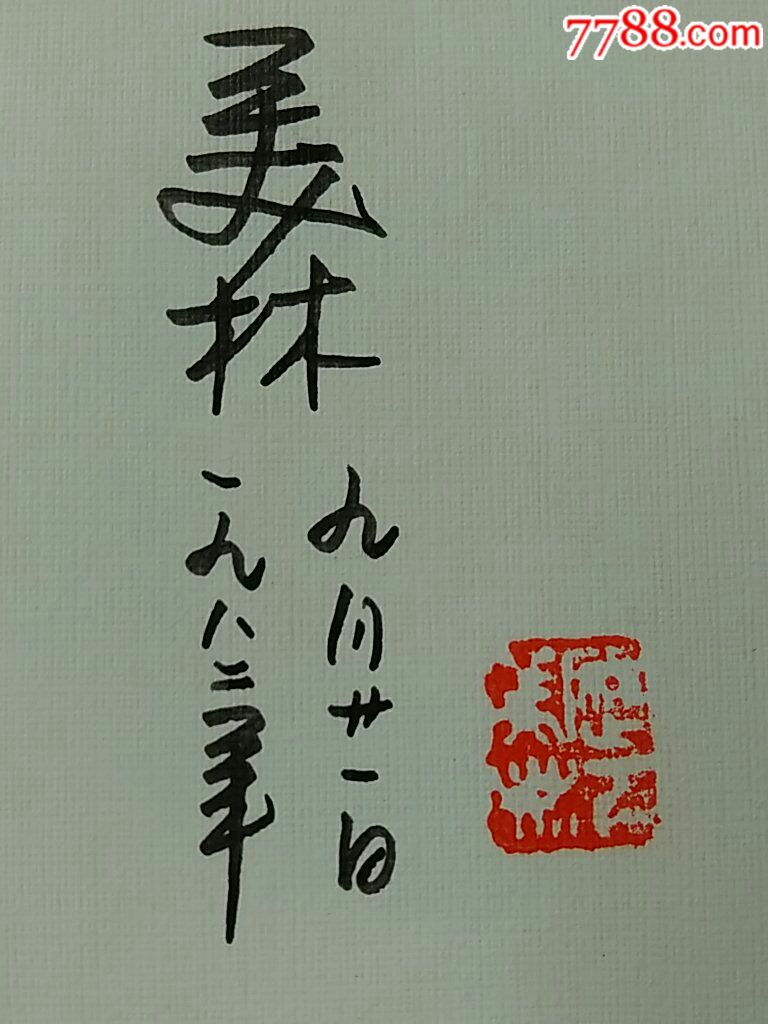 7788.com
美林
一九八二年
九月廿一日